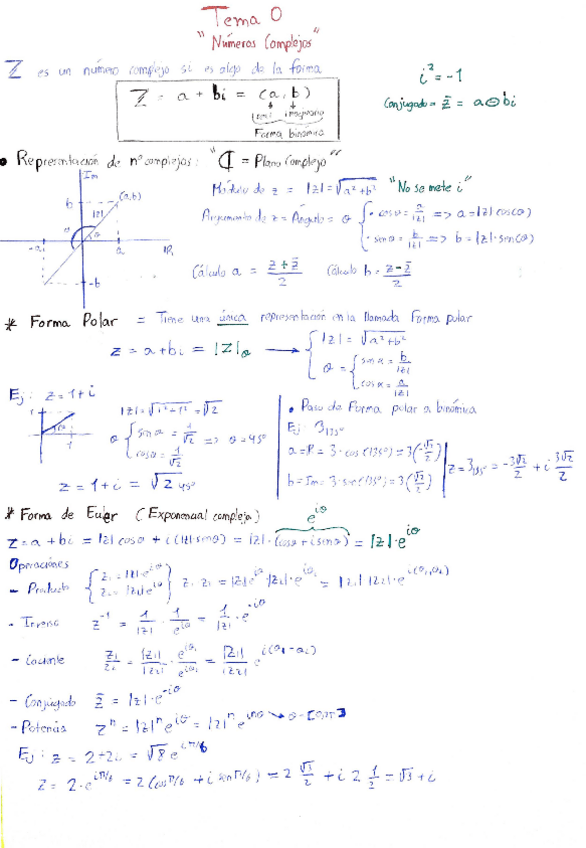 Tema 0
"Números Complejos"
Z es un número complejo si es algo de la forma
Z = a + bi = (a, b)
real imaginario
Forma binómica
i² = -1
Conjugado = z̄ = a ⊖ bi
• Representación de nº complejos: "ℂ = Plano Complejo"
Im
(a,b)
b
|z|
θ
-a
a
IR
-b
Módulo de z = |z| = √(a² + b²) "No se mete i"
Argumento de z = Ángulo = θ
• cosθ = a/|z| => a = |z| cos(θ)
• sinθ = b/|z| => b = |z|·sen(θ)
Cálculo a = (z + z̄)/2 Cálculo b = (z - z̄)/2
* Forma Polar = Tiene una única representación en la llamada Forma polar
z = a + bi = |z|θ →
|z| = √(a² + b²)
θ = sin α = b/|z|
cos α = a/|z|
Ej: z = 1 + i
1
1
|z| = √(1² + 1²) = √2
θ sin α = 1/√2
cos α = 1/√2 => θ = 45º
z = 1 + i = √2 45º
• Paso de Forma polar a binómica
Ej: 3 135º
a = R = 3·cos(135º) = 3(-√2/2)
b = Im = 3·sin(135º) = 3(√2/2)
z = 3 135º = -3√2/2 + i 3√2/2
* Forma de Euler (Exponencial compleja)
e^iθ
z = a + bi = |z| cosθ + i(|z| sinθ) = |z|·(cosθ + i sinθ) = |z|·e^iθ
Operaciones
- Producto
- Inverso z⁻¹ = 1/|z| · 1/e^iθ = 1/|z| · e^-iθ
- Cociente
- Conjugado z̄ = |z|·e^-iθ
- Potencia zⁿ = |z|ⁿ e^iθ = |z|ⁿ e^inθ
Ej: z = 2 + 2i = √8 e^iπ/6
z = 2·e^iπ/6 = 2(cos π/6 + i sen π/6) = 2 √3/2 + i 2 1/2 = √3 + i